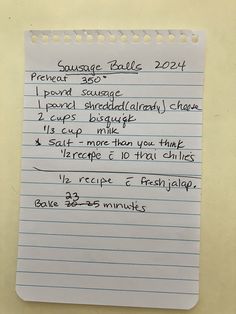 Sausage Balls 2024
Preheat 350°
1 pound sausage
1 pound shredded (already) cheese
2 cups bisquick
1/3 cup milk
& salt - more than you think
1/2 recipe c̄ 10 thai chilies
1/2 recipe c̄ fresh jalap.
23
Bake 20-25 minutes